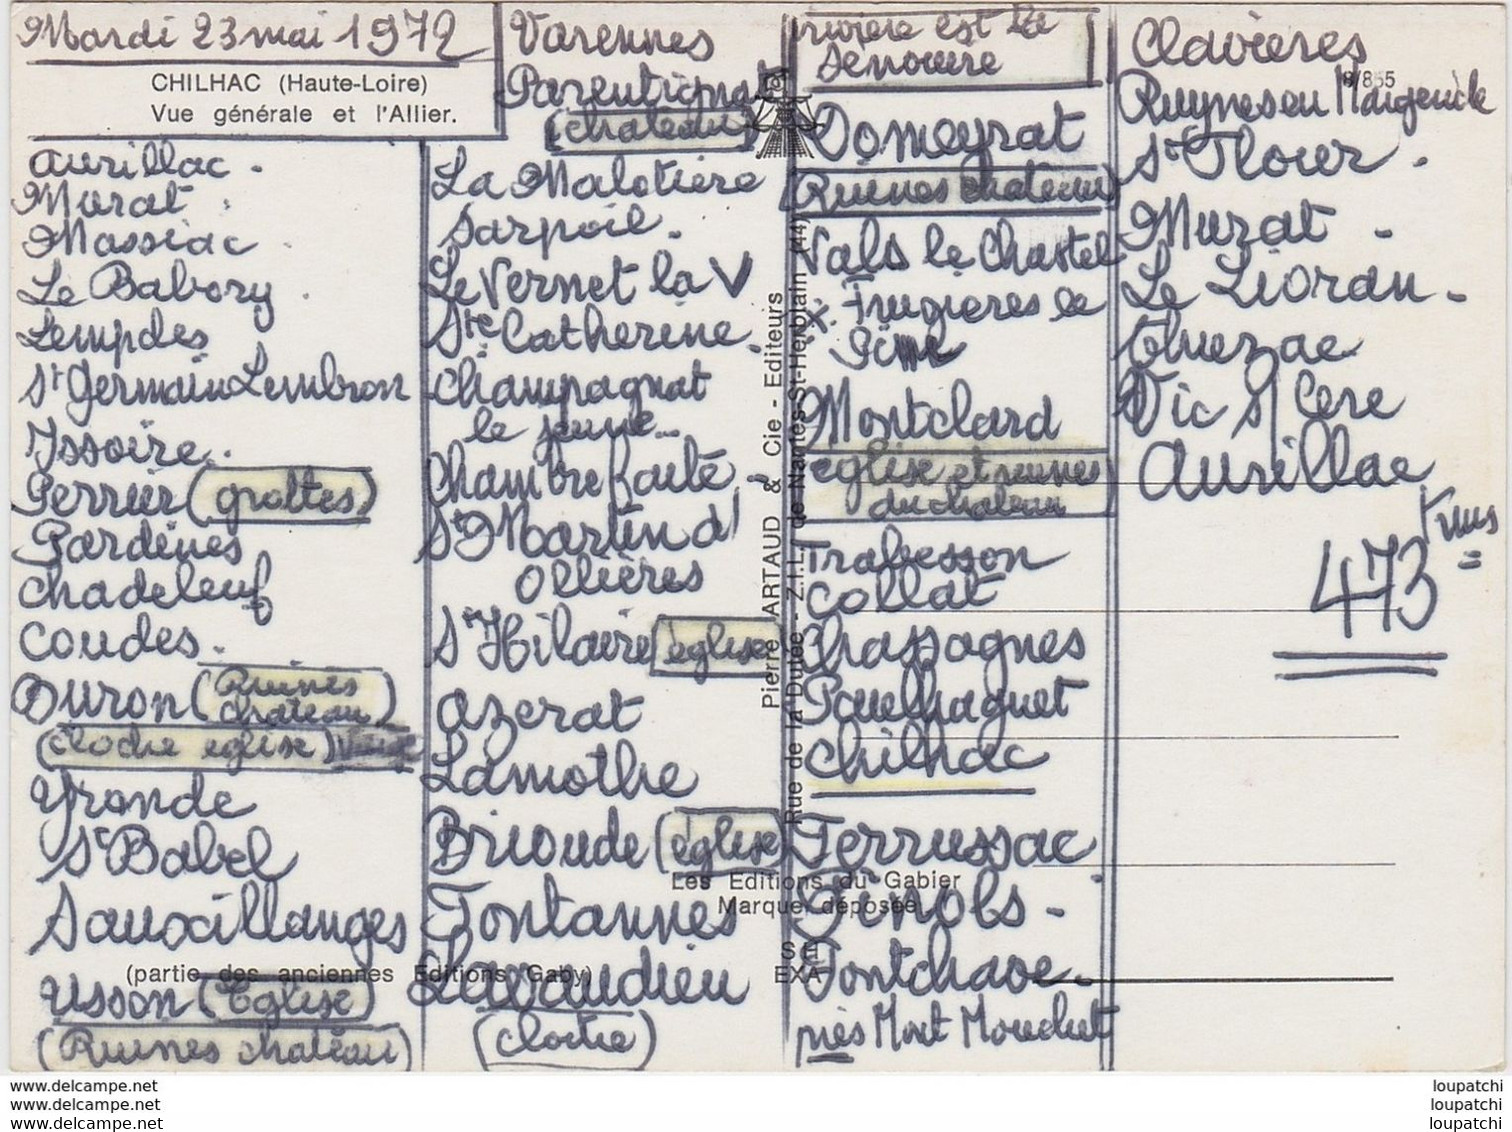 Mardi 23 mai 1972
CHILHAC (Haute-Loire)
Vue générale et l'Allier.
Aurillac.
Murat.
Massiac
Le Babory
Lempdes
St Germain Lembron
Issoire.
Perrier (grottes)
Pardines
Chadeleuf
Coudes.
Buron (Ruines
chateau)
(cloche église)
Yronde
St Babel
Sauxillanges
Usson (Eglise)
(Ruines chateau)
Varennes
Parentignat
(chateau)
La Malotiere
Sarpoil.
Le Vernet la V
Ste Catherine.
Champagnat
le jeune...
Chambre haute
St Martin d'
Ollières
St Hilaire (église)
Azerat
Lamothe
Brioude (église)
Fontannes
Lavaudieu
(cloitre)
rivière est la
Senouire
Domeyrat
(Ruines chateau)
Vals le Chastel
x. Frugieres le
Pin
Montclard
église et ruines
du chateau
Trabesson
Collat
Chassagnes
Paulhaguet
Chilhac
Ferrussac
Pinols.
Pontchave.
près Mont Mouchet
Clavieres
Ruynes en Margeride
St Flour.
Murat.
Le Lioran.
Thiezac
Vic s/ Cere
Aurillac
473 kms
8/855
Pierre ARTAUD & Cie - Editeurs
Rue de la Dutée - Z.I.L. de Nantes-St-Herblain (44)
Les Editions du Gabier
Marque déposée
(partie des anciennes Editions Gaby)
S H
EXA
www.delcampe.net
www.delcampe.net
www.delcampe.net
loupatchi
loupatchi
loupatchi